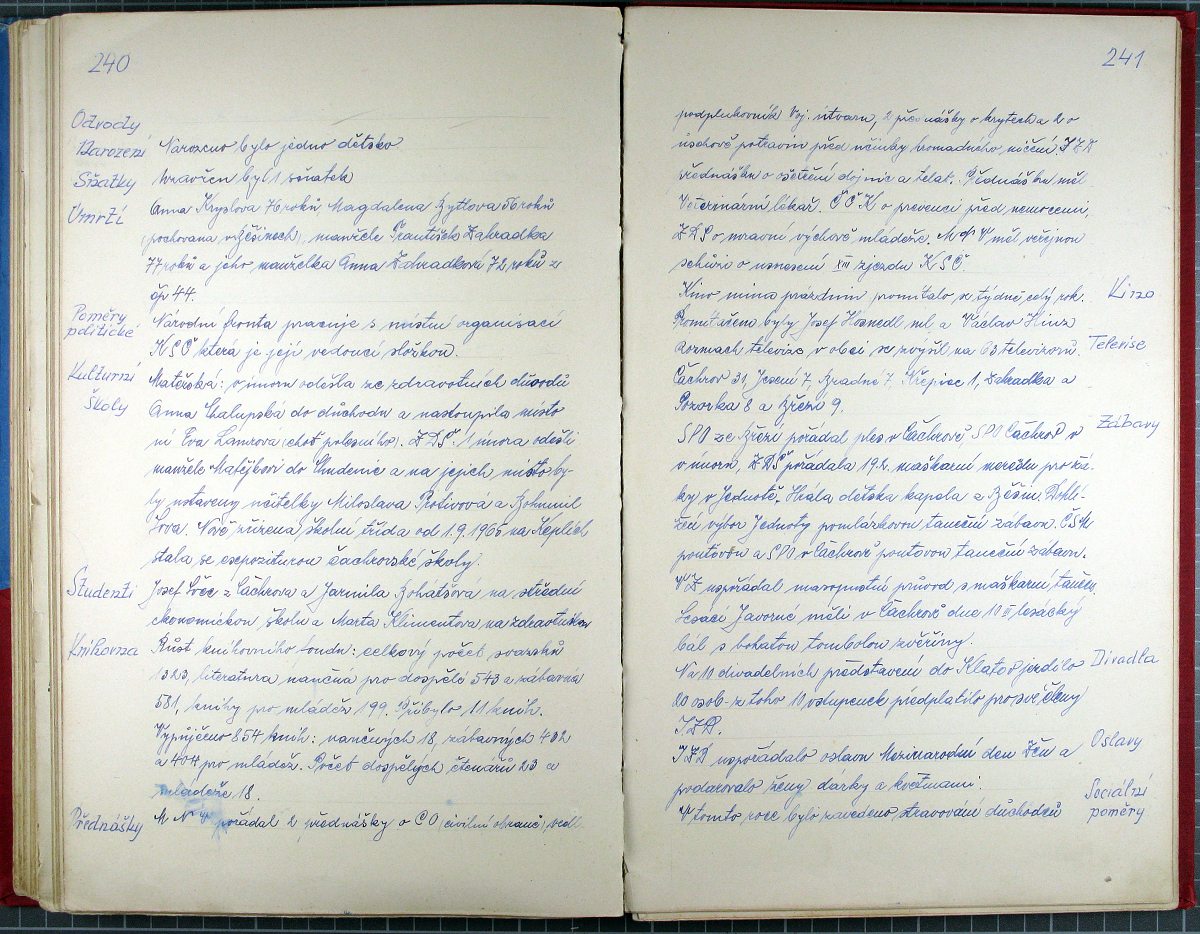 240
Odvody
Narození Narozeno bylo jedno děťsko
Sňatky Uzavřen byl 1 sňatek
Úmrtí Anna Kryslova 76 roků Magdalena Bytlova 56 roků
(pochovana v Běšinech), manželé František Zahradka
77 roků a jeho manželka Anna Zahradkova 72 roků z
čp 44.
Poměry politické Národní fronta pracuje s místní organisací
KSČ která je její vedoucí složkou.
Kulturní Mateřská: v únoru odešla ze zdravotních důvodů
Školy Anna Chalupská do důchodu a nastoupila místo
ní Eva Lamrova (choť polesného). ZDŠ. 1 února odešli
manžele Matějkovi do Chudenic a na jejich místo by-
ly ustaveny učitelky Miloslava Protivová a Bohumil
Nově zřízena školní třída od 1.9.1966 na Keplích
stala se expositurou čachrovské školy.
Studenti Josef z Čachrova a Jarmila Bohatšová na střední
ekonomickou školu a Marta Klimentova na zdravotnickou
Knihovna Růst knihovního fondu: celkový počet svazků
1323, literatura naučná pro dospělé 543 a zábavná
581, knihy pro mládež 199. Přibylo 11 knih.
Vypůjčeno 854 knih: naučných 18, zábavných 432
a 404 pro mládež. Počet dospělých čtenářů 23 a
mládeže 18.
Přednášky M pořádal 2 přednášky o CO (civilní obraně), vedl
241
podplukovník Voj. útvaru, 2 přednášky o krytech a 2 o
úschově potravin před účinky hromadného ničení. JZD
přednášku o ošetření dojnic a telat. Přednášku měl
Veterinární lékař. ČČK o prevenci před nemocemi,
ZDŠ o mravní výchově mládeže. M měl veřejnou
schůzi o usnesení XIII zjezdu KSČ.
Kino mimo prázdnin promítalo x týdně celý rok. Kino
Promítačem byly Josef Hosnedl ml. a Václav Hinz
Rozmach televize v obci se zvýšil na 63 televizorů. Televise
Čachrov 31, Jesení 7, Bradné 7 Křepice 1, Zahradka a
Pozorka 8 a Březí 9.
SPO ze Březí pořádal ples v Čachrově SPO Čachrov v Zábavy
v únoru, ZDŠ pořádala 19.2. maškarní merendu pro žá-
ky v Jednotě. Hrála dětska kapela z Běšin. Dohlí-
žecí výbor Jednoty pomlázkovou taneční zábavu. ČSM
pouťovou a SPO v Čachrově pouťovou taneční zábavu.
VŽ uspořádal masopustní průvod s maškarní tanečn.
Lesáci Javorné měli v Čachrově dne lesácký
bál s bohatou tombolou zvěřiny.
Na 10 divadelních představení do Klatov jezdilo Divadla
20 osob z toho 10 vstupenek předplatilo pro své členy
JZD.
JZD uspořádalo oslavu Mezinárodní den Žen a Oslavy
podarovalo ženy dárky a květinami.
V tomto roce bylo zavedeno stravování důchodců Sociální poměry